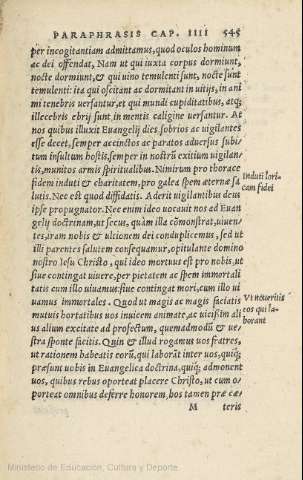 PARAPHRASIS CAP. IIII 545
per incogitantiam admittamus, quod oculos hominum
ac dei offendat, Nam ut qui iuxta corpus dormiunt,
nocte dormiunt, & qui uino temulenti sunt, nocte sunt
temulenti: ita qui oscitant ac dormitant in uitijs, in ani
mi tenebris uersantur, et qui mundi cupiditatibus, atq;
illecebris ebrij sunt, in mentis caligine uersantur. At
nos quibus illuxit Euangelij dies sobrios ac uigilantes
esse decet, semper accinctos ac paratos aduersus subi/
tum insultum hostis, semper in nostrū exitium uigilan/
tis, munitos armis spiritualibus. Nimirum pro thorace
fidem induti & charitatem, pro galea spem æternæ sa
lutis. Nec est quod diffidatis. Aderit uigilantibus deus
ipse propugnator. Nec enim ideo uocauit nos ad Euan
gelij doctrinam, ut secus, quàm illa cōmonstrat, uiuen/
tes, iram nobis & ultionem dei conduplicemus, sed ut
illi parentes salutem consequamur, opitulante domino
nostro Iesu Christo, qui ideo mortuus est pro nobis, ut
siue contingat uiuere, per pietatem ac spem immortali
tatis cum illo uiuamus: siue contingat mori, cum illo ui
uamus immortales. Quod ut magis ac magis faciatis
mutuis hortatibus uos inuicem animate, ac uicissim ali
us alium excitate ad profectum, quemadmodū & ue/
stra sponte facitis. Quin & illud rogamus uos fratres,
ut rationem habeatis eorū, qui laborāt inter uos, quiq́;
præsunt uobis in Euangelica doctrina, quiq́; admonent
uos, quibus rebus oporteat placere Christo, ut cum o/
porteat omnibus deferre honorem, hos tamen præ cæ/
M teris
Induti lori/
cam fidei
Vt noueritis
eos qui la/
borant
Ministerio de Educación, Cultura y Deporte